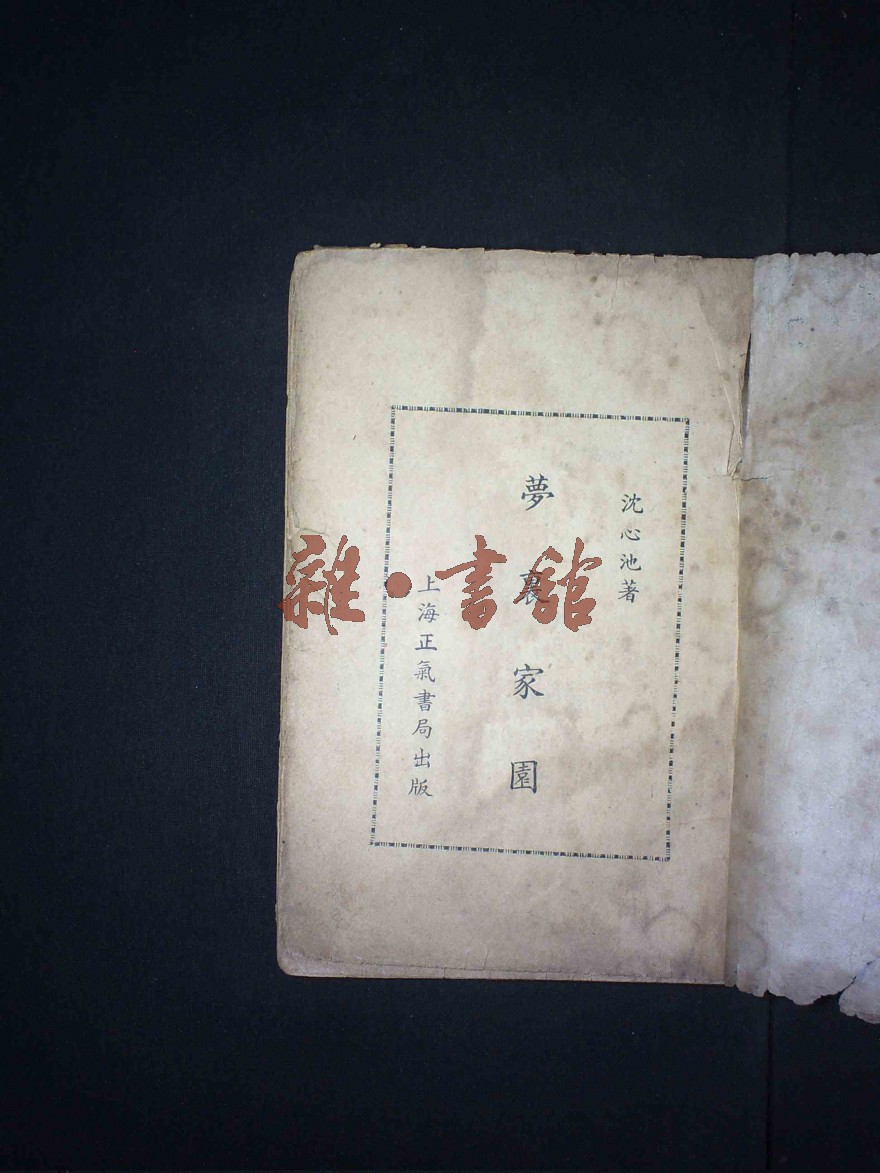 沈心池著
夢裏家園
上海正氣書局出版
雜·書館